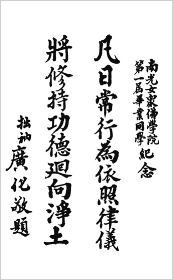 南光女眾佛學院
第一屆畢業同學紀念
凡日常行為依照律儀
將修持功德迴向淨土
拙衲廣化敬題